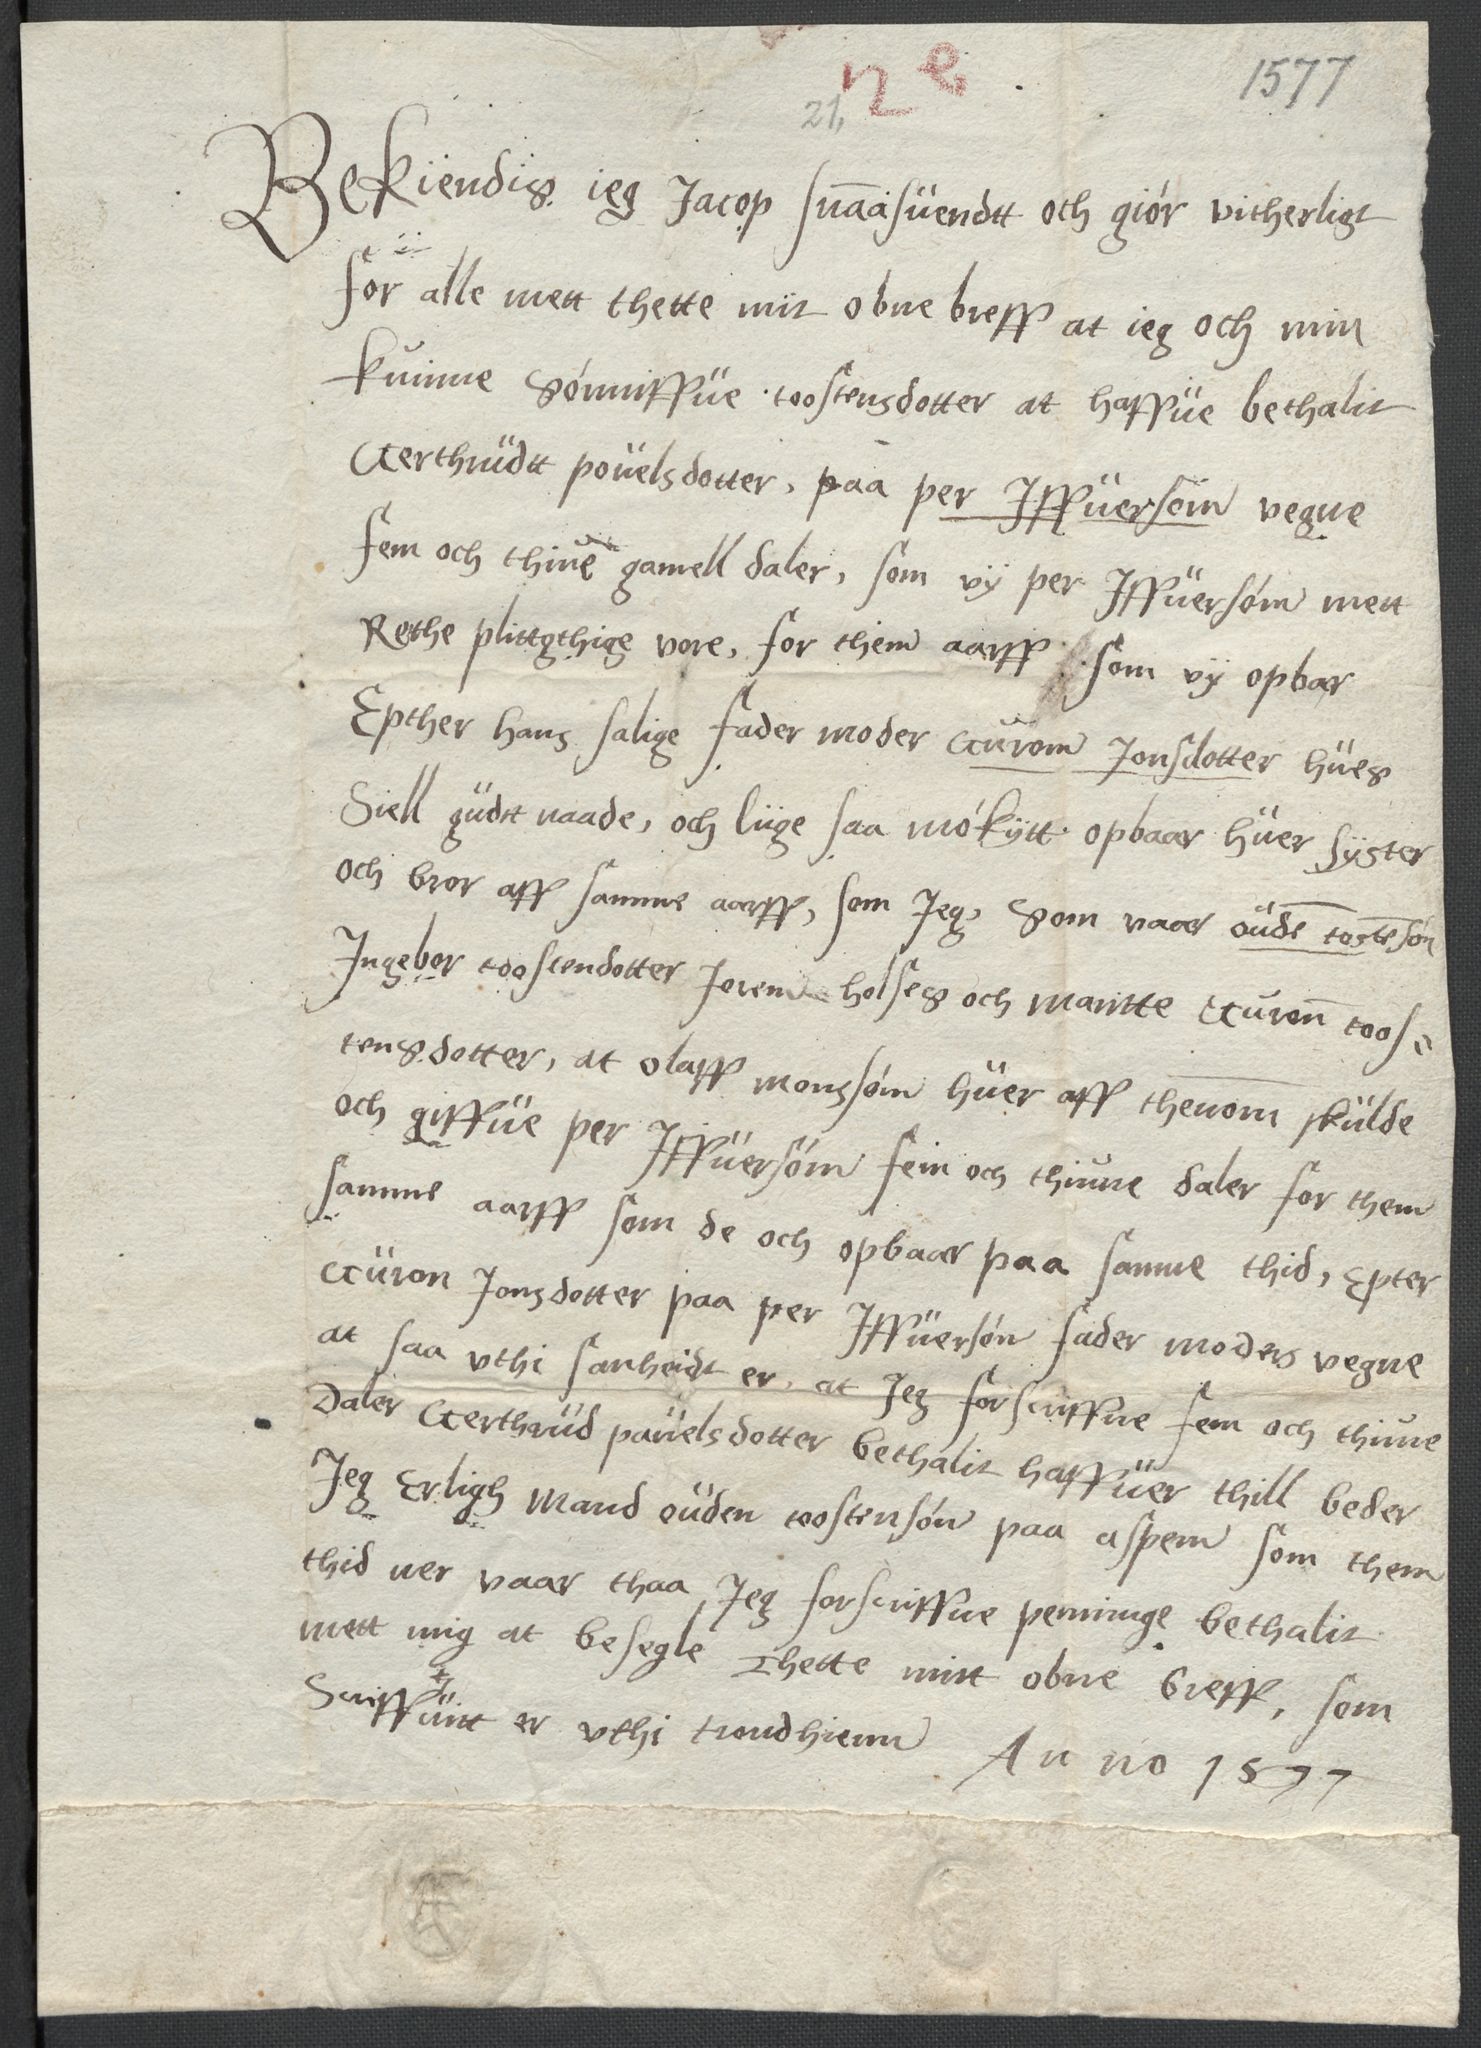 1577
21, n e
Bekiendis ieg Jacop snaasuendtt och giór vitherligt
for alle mett thette mit obne breff at ieg och min
kuinne Sónniffue toostensdotter at haffue bethalit
Gerthrudtt pouelsdotter, paa per Iffuersøin vegne
fem och thiue gamell daler, som vÿ per Iffuersóm mett
Rethe plittgthige vore, for them aarff som vÿ opbar
Epther hans salige fader moder Gurom Jonsdotter hues
Siell gudtt naade, och liige saa mókytt opbaar huer syster
och bror aff samme aarff, som Jeg, Som vaar oude tostesón
Ingebor toostendotter Joren holses och Maritte Guron toos-
tensdotter, at olaff monssóm huer aff thenom skulde
och giffue per Iffuersóm fem och thiuue daler for them
samme aarff som de och opbaar paa samme thid, Epter
Guron Jonsdotter paa per Iffuersón fader moders vegne
at saa vthi sanheidt er, at Jeg forscriffue fem och thiuue
Daler Gerthrud pauelsdotter bethalit haffuer thill beder
Jeg Erligh Mand ouden toostensón paa aspem som them
thid ner vaar thaa Jeg forscriffue penninge bethalit
mett mig at besegle Thette mitt obne breff, som
Scriffuitt er vthi trondhiem Anno 1577